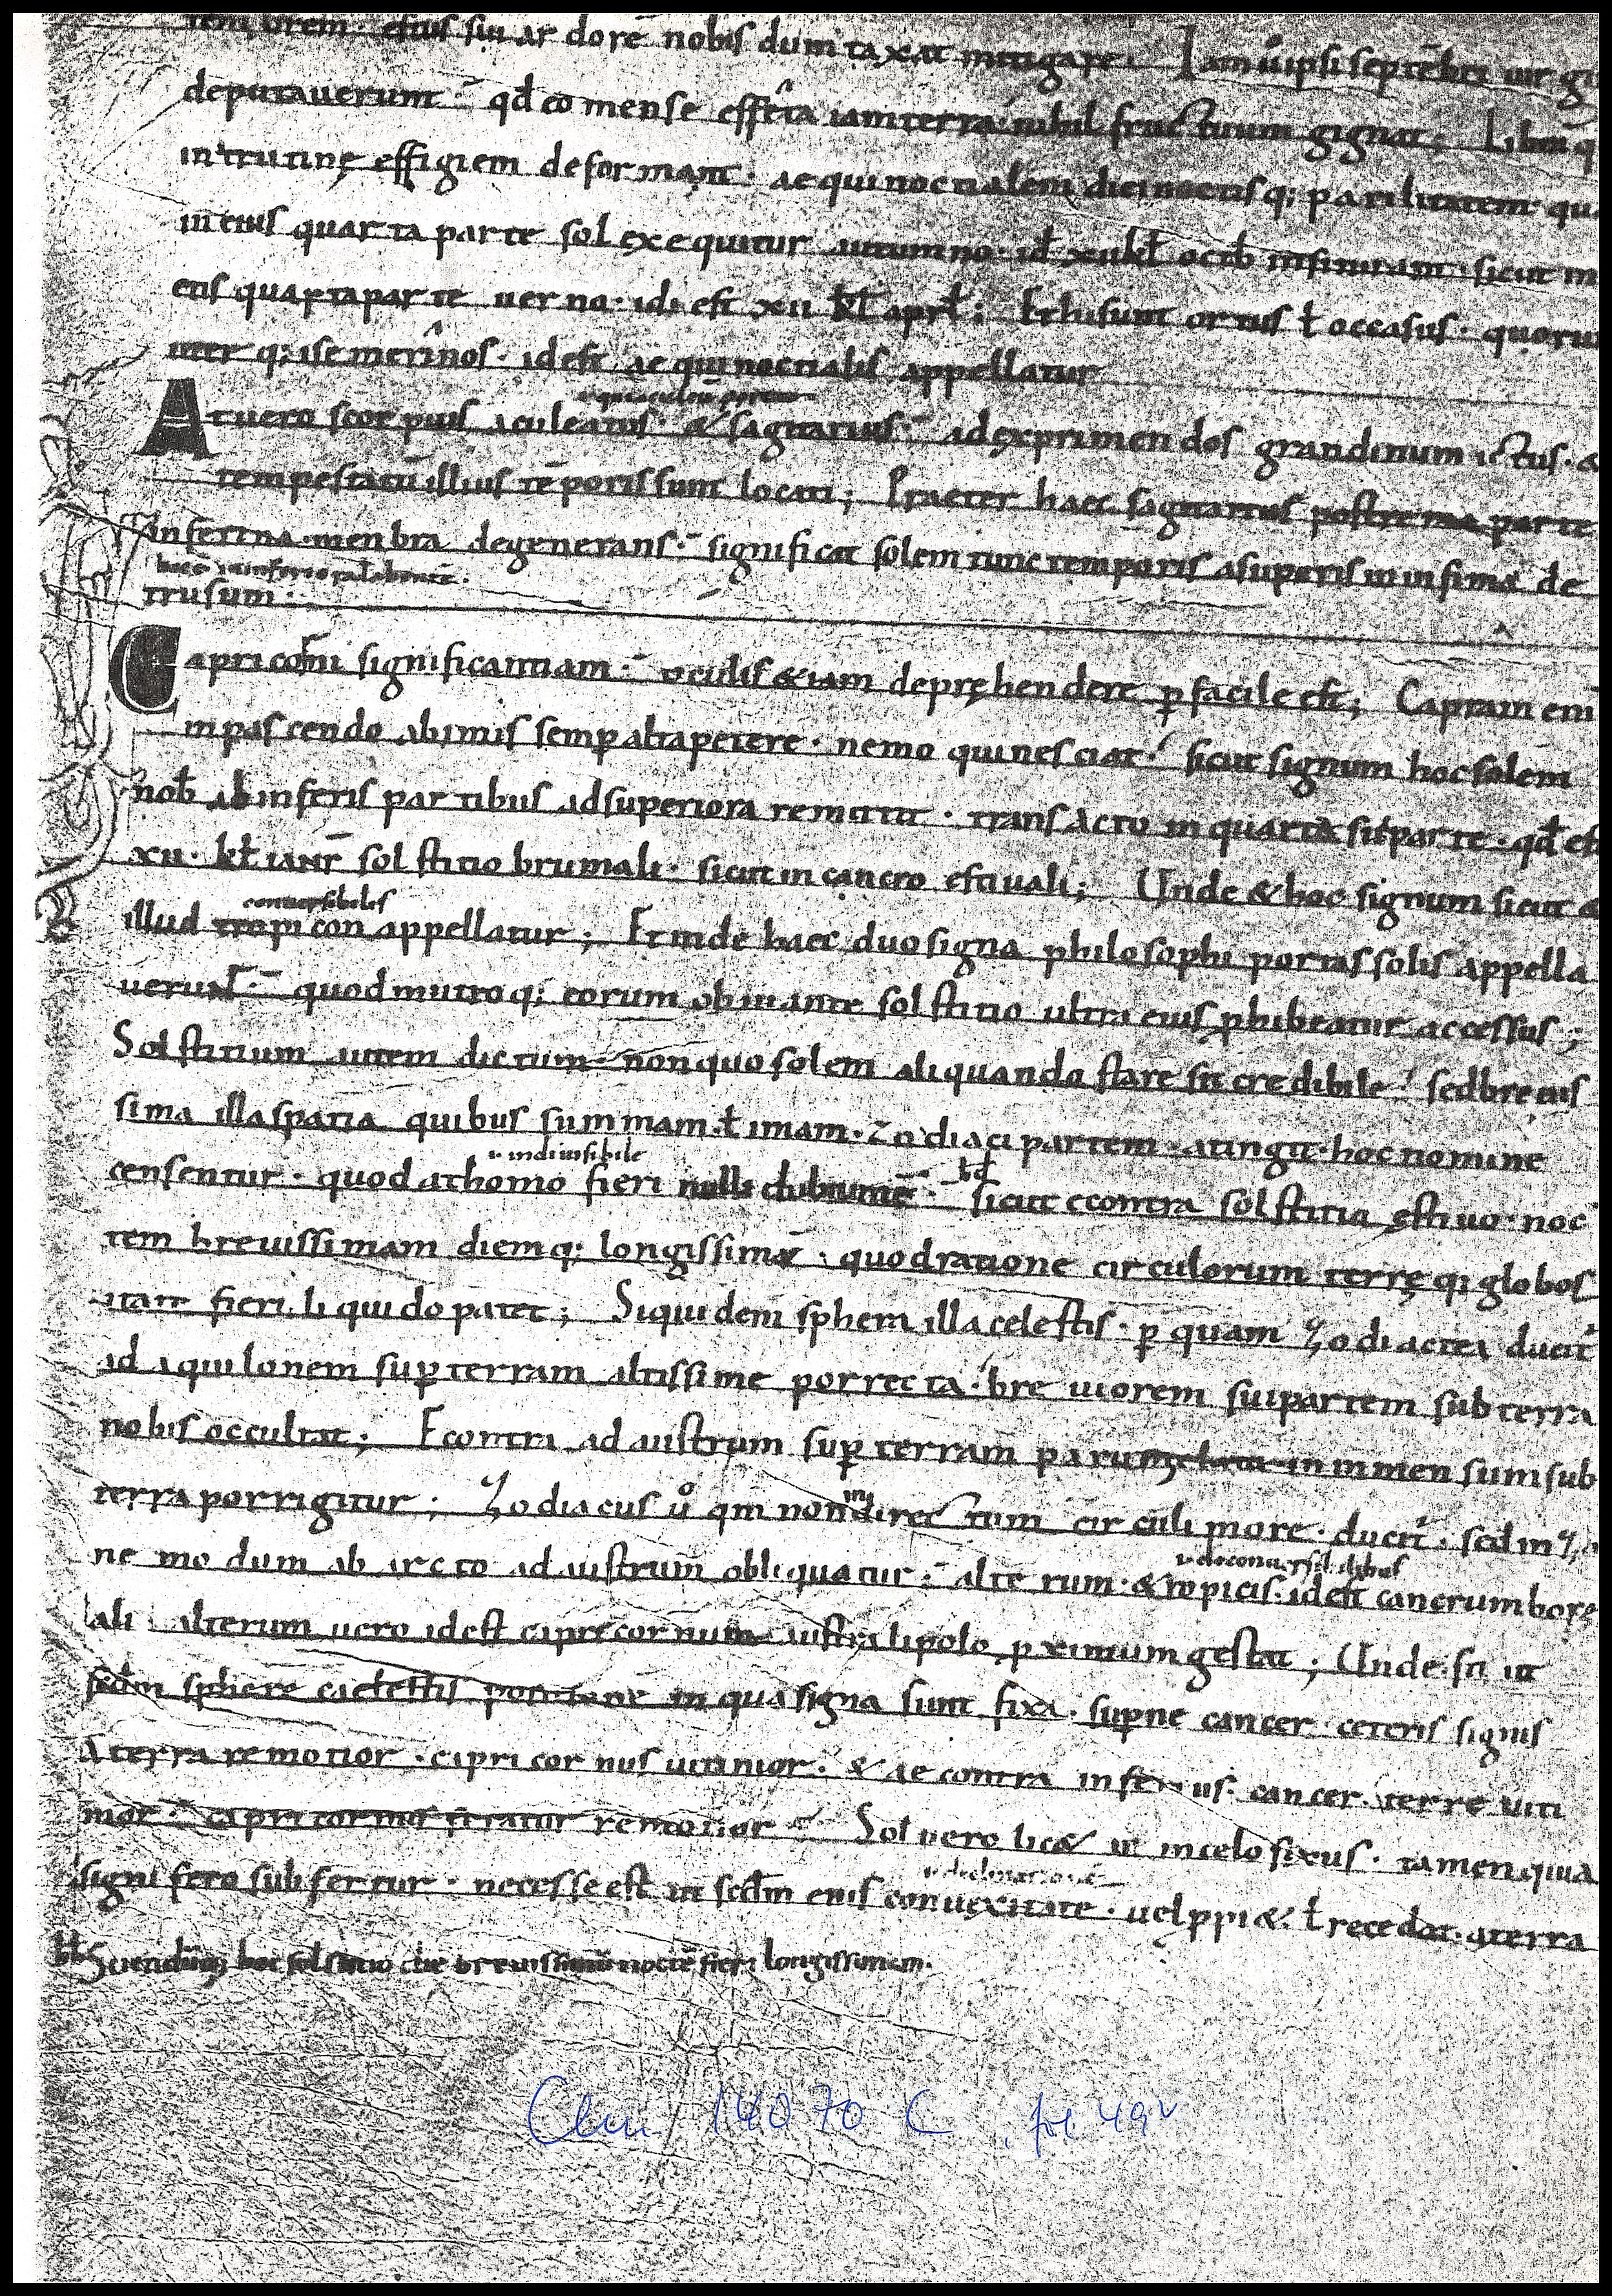 temporem · estus sui ardorē nobis dum taxat mitigare · Iam ů ipsi septēbri uirgi
deputauerunt · qđ eo mense effeta iam terra nihil fructuum gignat · Libra q
in trutinę effigiem deformant · aequinoctialem diei noctisq; parilitatem qu
in eius quarta parte sol exequitur autumno · id xii kł octb insinuant · sicut in
eius quarta parte uerno · id est xii kł aprł ; sunt ortus ł occasus · quoru
uterq; isemerinos · id est aequinoctialis appellatur
At uero scorpius aculeatus · & sagittarius · ad exprimendos grandinum ictus · &
tempestatū illius tēporis sunt locati ; Praeter haec sagittarius postrema parte
in ferina menbra degenerans · significat solem tunc temporis a superis in infima de
hoc ē in inferiora labente ·
trusum ·
Capricorni significantiam · oculis &iam depręhendere ꝑfacile est ; Capram eni
in pascendo ab imis semꝑ alta petere · nemo qui nesciat · sicut signum hoc solem
nob ab inferis partibus ad superiora remittit · transacto in quarta sui parte · qđ est
xii · kł ianr̄ solstitio brumali · sicut in cancro estiuali ; Unde & hoc signum sicut &
conuersibiles
illud tropicon appellatur ; Et inde haec duo signa philosophi portas solis appella
uerunt · quod in utroq; eorum obuiante solstitio ultra eius ꝓhibeatur accessus ;
Solstitium autem dictum · non quo solem aliquando stare sit credibile · sed breuis
sima illa spatia quibus summam · ł imam · zodiaci partem · atingit · hoc nomine
i· indiuisibile
censentur · quod athomo fieri nulli dubium ē · hđ sicut econtra solstitia ęstiuo · noc
tem breuissimam diemq; longissimā · quod ratione circulorum terręq; globos
itate fieri liquido patet ; Siquidem sphera illa celestis · ꝑ quam zodiactea ducit̄
ad aquilonem suꝑ terram altissime porrecta · breuiorem sui partem sub terra
nobis occultat ; Econtra ad austrum suꝑ terram parum in inmensum sub
terra porrigitur ; Zodiacus ů qm̄ non in directum circuli more · ducit̄ · sed in zo
ne modum ab arcto ad austrum obliquatur · alterum · & ropicis · id est cancrum bore
ali · alterum uero id est capricornum australi polo ꝓximum gestat ; Unde fit ut
scđm sphere caelestis positione in qua signa sunt fixa · suꝑne cancer · ceteris signis
a terra remotior · capricornus uicinior · & ae contra inferius · cancer · terre uici
nior · capricornus remotior · Sol uero lic& in celo fixus · tamen quia
i· declinatione
signifero subfertur · necesse est ut scđm eius conuexitate · uel ꝓpri& · ł recedat · a terra
hđ Sciendū q; hoc solstitio die breuissimū noctē fieri longissimam ·
Clm 14070 c , fol. 49v